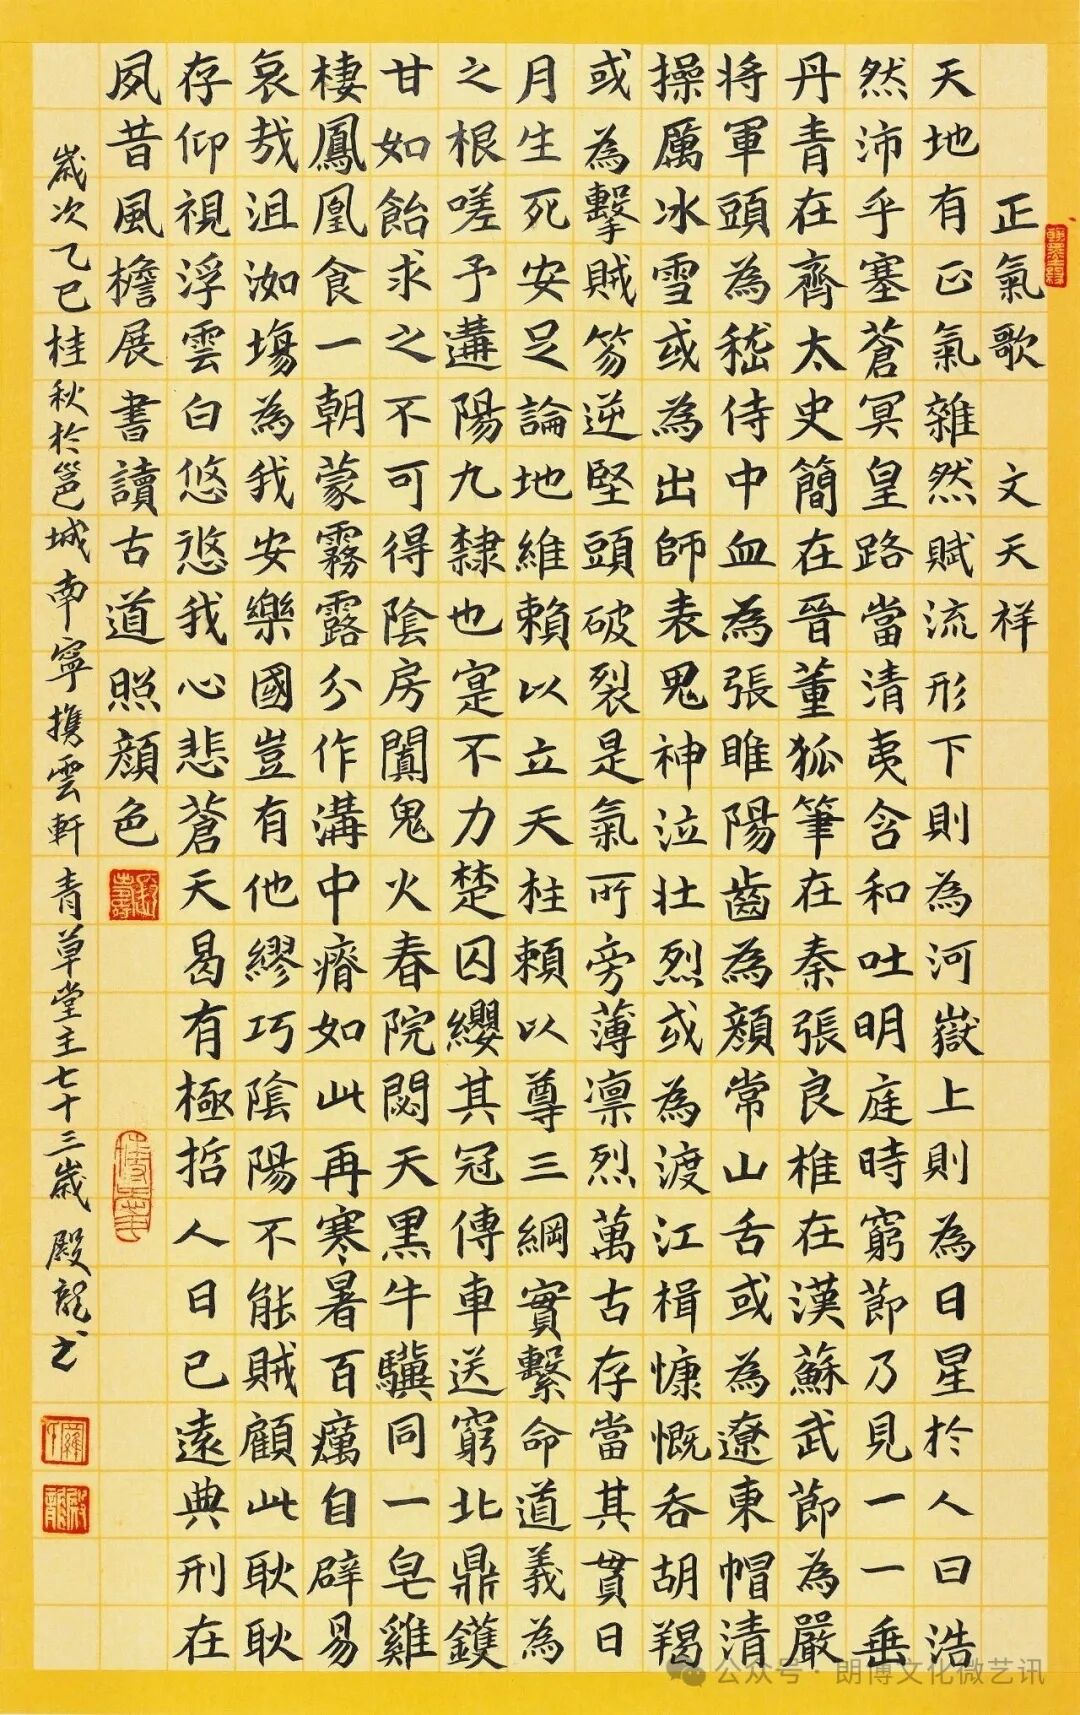 正氣歌 文天祥
天地有正氣雜然賦流形下則為河嶽上則為日星於人曰浩
然沛乎塞蒼冥皇路當清夷含和吐明庭時窮節乃見一一垂
丹青在齊太史簡在晉董狐筆在秦張良椎在漢蘇武節為嚴
將軍頭為嵇侍中血為張睢陽齒為顏常山舌或為遼東帽清
操厲冰雪或為出師表鬼神泣壯烈或為渡江楫慷慨吞胡羯
或為擊賊笏逆堅頭破裂是氣所旁薄凛烈萬古存當其貫日
月生死安足論地維賴以立天柱賴以尊三綱實繫命道義為
之根嗟予遘陽九隸也寔不力楚囚纓其冠傳車送窮北鼎鑊
甘如飴求之不可得陰房闃鬼火春院閟天黑牛驥同一皂雞
棲鳳凰食一朝蒙霧露分作溝中瘠如此再寒暑百癘自辟易
哀哉沮洳塲為我安樂國豈有他繆巧陰陽不能賊顧此耿耿
存仰視浮雲白悠悠我心悲蒼天曷有極哲人日已遠典刑在
夙昔風檐展書讀古道照顏色
歲次乙巳桂秋於邕城南寧携雲軒青草堂主七十三歲殿龍书
公众号·朗博文化微艺讯